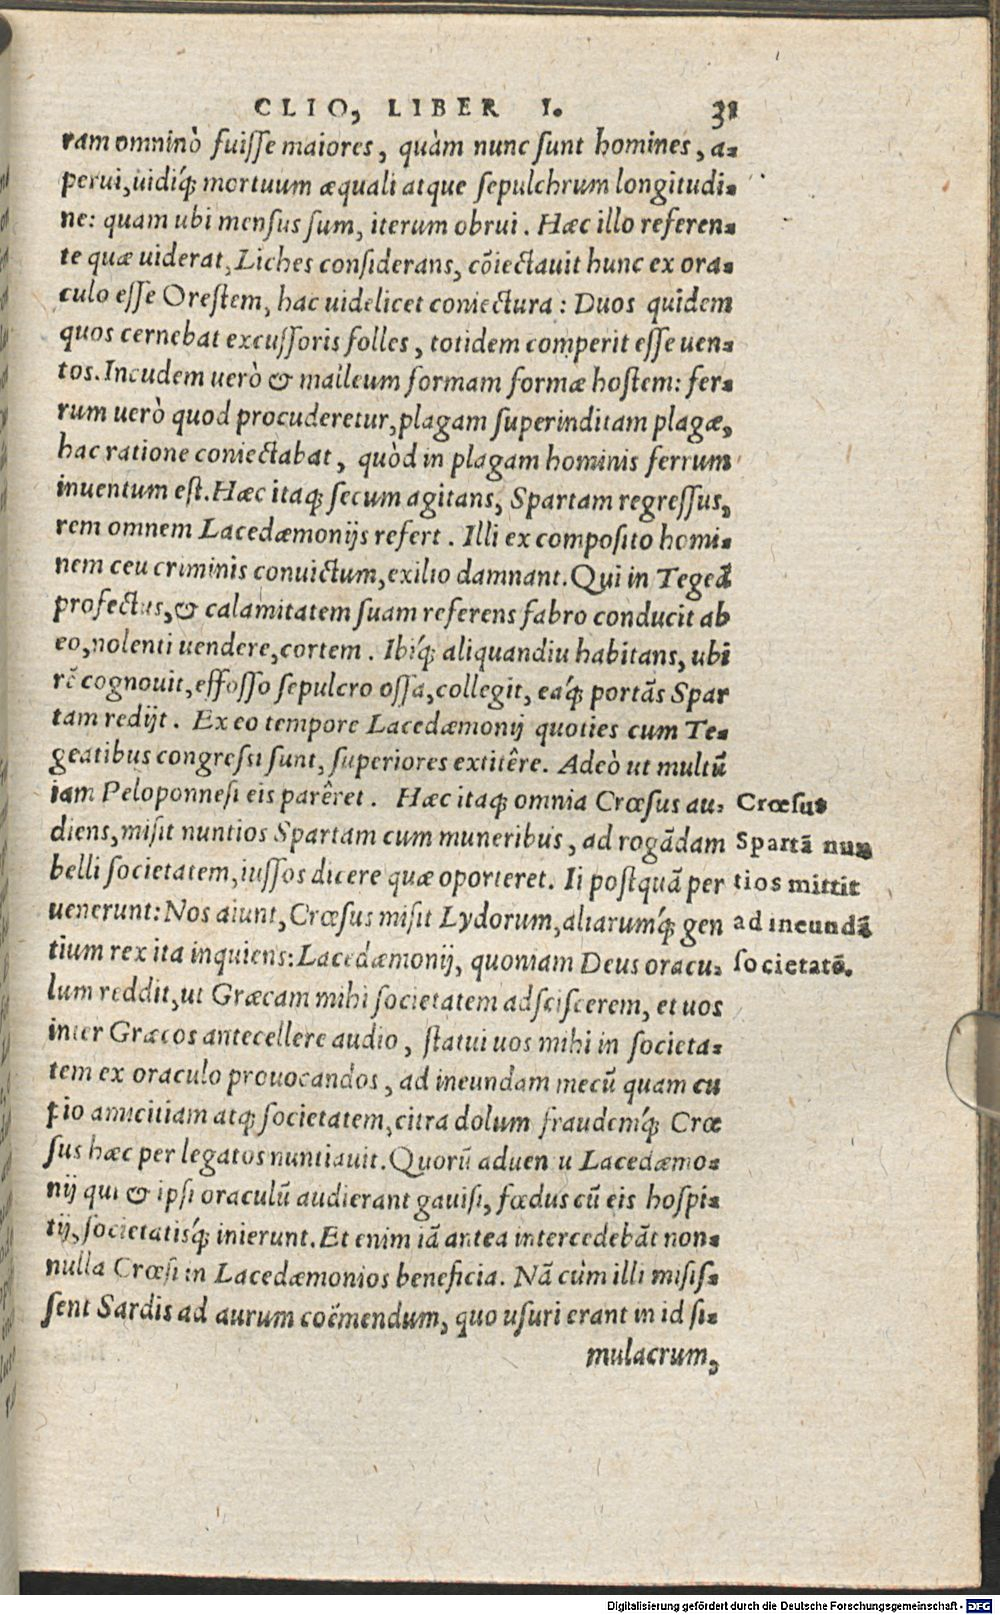 CLIO, LIBER I. 31
ram omninò fuisse maiores, quàm nunc sunt homines, a-
perui, uidíq; mortuum æquali atque sepulchrum longitudi-
ne: quam ubi mensus sum, iterum obrui. Hæc illo referen-
te quæ uiderat, Liches considerans, cõiectauit hunc ex ora-
culo esse Orestem, hac uidelicet coniectura: Duos quidem
quos cernebat excussoris folles, totidem comperit esse uen-
tos. Incudem uerò & malleum formam formæ hostem: fer-
rum uerò quod procuderetur, plagam superinditam plagæ,
hac ratione coniectabat, quòd in plagam hominis ferrum
inuentum est. Hæc itaq; secum agitans, Spartam regressus,
rem omnem Lacedæmonijs refert. Illi ex composito homi-
nem ceu criminis conuictum, exilio damnant. Qui in Tegeã
profectus, & calamitatem suam referens fabro conducit ab
eo, nolenti uendere, cortem. Ibíq; aliquandiu habitans, ubi
rē cognouit, effosso sepulcro ossa, collegit, eáq; portãs Spar
tam redijt. Ex eo tempore Lacedæmonij quoties cum Te-
geatibus congressi sunt, superiores extitêre. Adeò ut multũ
iam Peloponnesi eis parêret. Hæc itaq; omnia Crœsus au-
diens, misit nuntios Spartam cum muneribus, ad rogãdam
belli societatem, iussos dicere quæ oporteret. Ii postquã per
uenerunt: Nos aiunt, Crœsus misit Lydorum, aliarumq́; gen
tium rex ita inquiens: Lacedæmonij, quoniam Deus oracu-
lum reddit, ut Græcam mihi societatem adsciscerem, et uos
inter Græcos antecellere audio, statui uos mihi in societa-
tem ex oraculo prouocandos, ad ineundam mecũ quam cu
pio amicitiam atq; societatem, citra dolum fraudemq́; Crœ
sus hæc per legatos nuntiauit. Quorũ aduen u Lacedæmo-
nij qui & ipsi oraculũ audierant gauisi, fœdus cũ eis hospi-
tij, societatisq́; inierunt. Et enim iã antea intercedebãt non-
nulla Crœsi in Lacedæmonios beneficia. Nã cùm illi misis-
sent Sardis ad aurum coëmendum, quo usuri erant in id si-
mulacrum,
Crœsus
Spartã nun
tios mittit
ad ineundã
societatē.
Digitalisierung gefördert durch die Deutsche Forschungsgemeinschaft - DFG